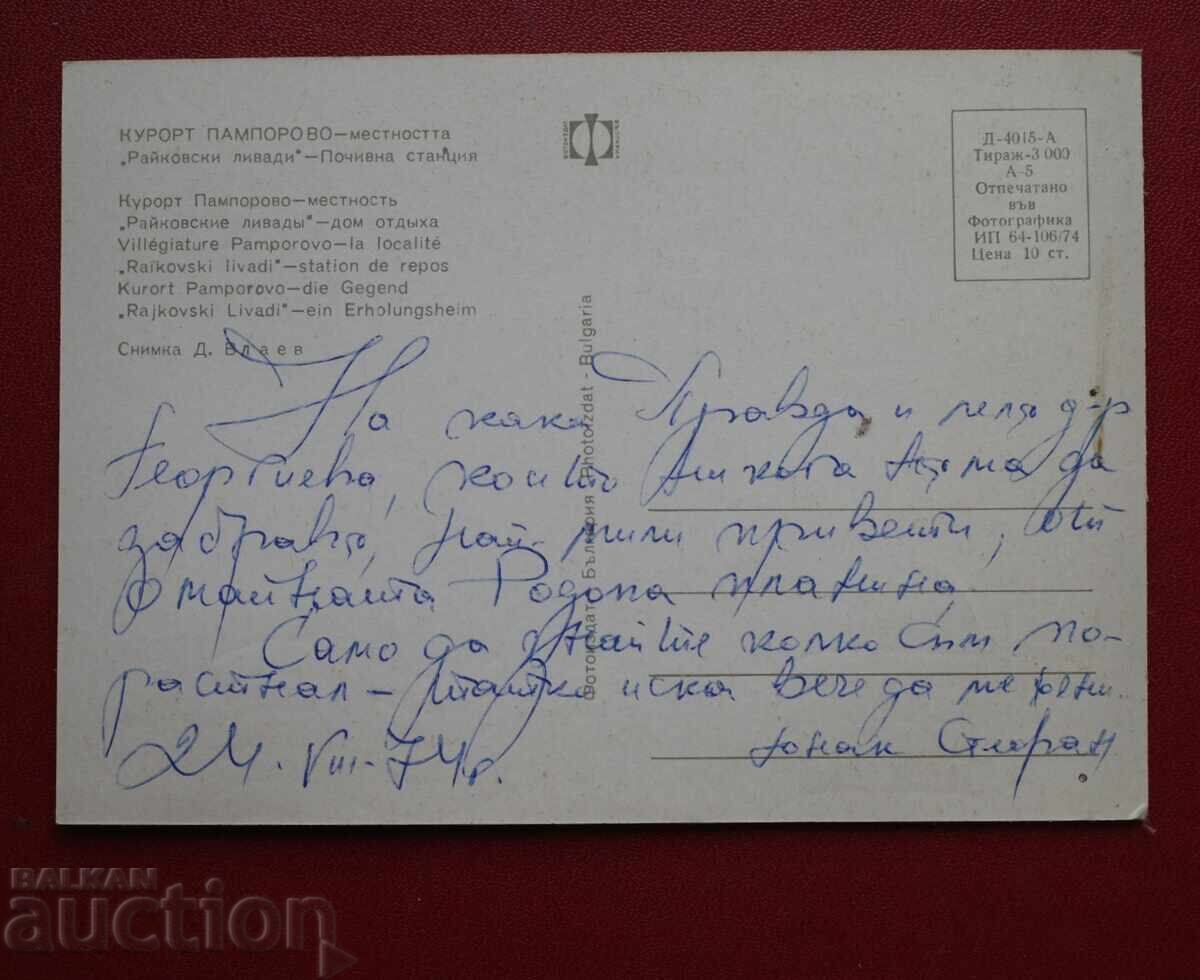 КУРОРТ ПАМПОРОВО—местността
„Райковски ливади"—Почивна станция
Курорт Пампорово—местность
„Райковские ливады"—дом отдыха
Villégiature Pamporovo—la localité
„Raïkovski livadi"—station de repos
Kurort Pamporovo—die Gegend
„Rajkovski Livadi"—ein Erholungsheim
Снимка Д. Влаев
Д-4015-А
Тираж-3 000
А-5
Отпечатано
във
Фотографика
ИП 64-106/74
Цена 10 ст.
Фотоиздат - България - Photoizdat - Bulgaria
На кака Правда и леля д-р
Георгиева, които никога няма да
забравя, най-мили привети, от
омайната Родопа планина.
Само да знаите колко съм по-
растнал – татко иска вече да ме жени.
юнак Стефан
24. VIII. 74 г.
BALKAN
auction